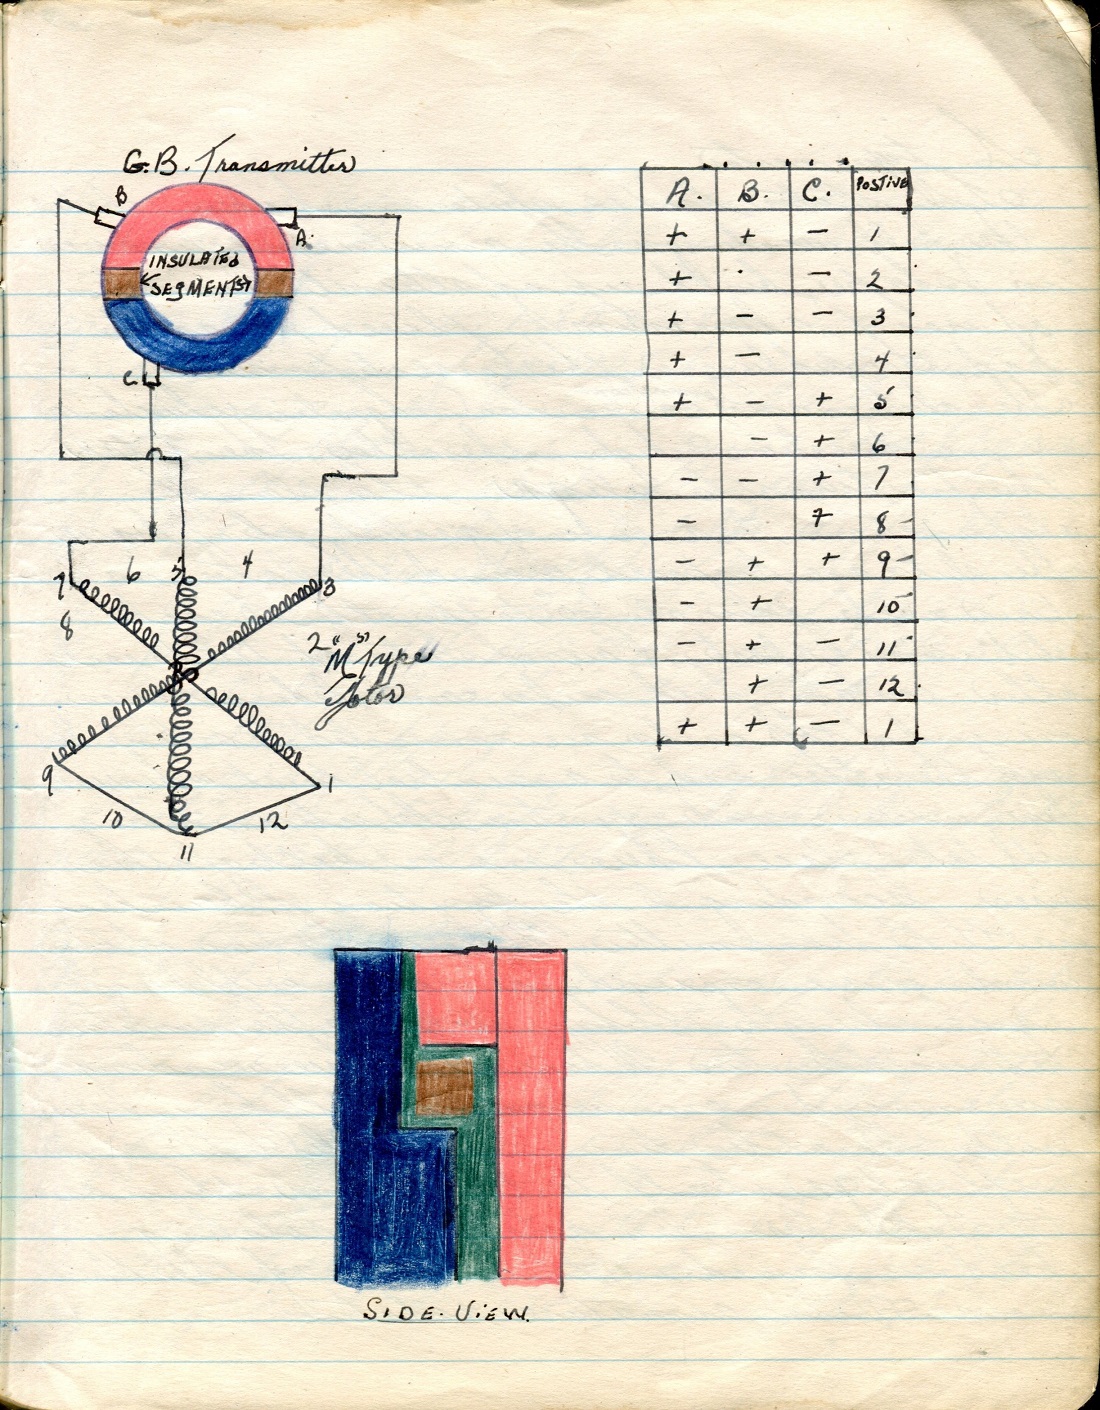 G.B. Transmitter
B
A.
INSULATED
SEGMENTS
C.
6 5 4
7 3
8
2 "M" Type
Motor
9 1
10 12
11
A. B. C. POSTIVE
+ + − 1
+ · − 2
+ − − 3
+ − 4
+ − + 5
− + 6
− − + 7
− + 8
− + + 9
− + 10
− + − 11
+ − 12
+ + − 1
SIDE. VIEW.